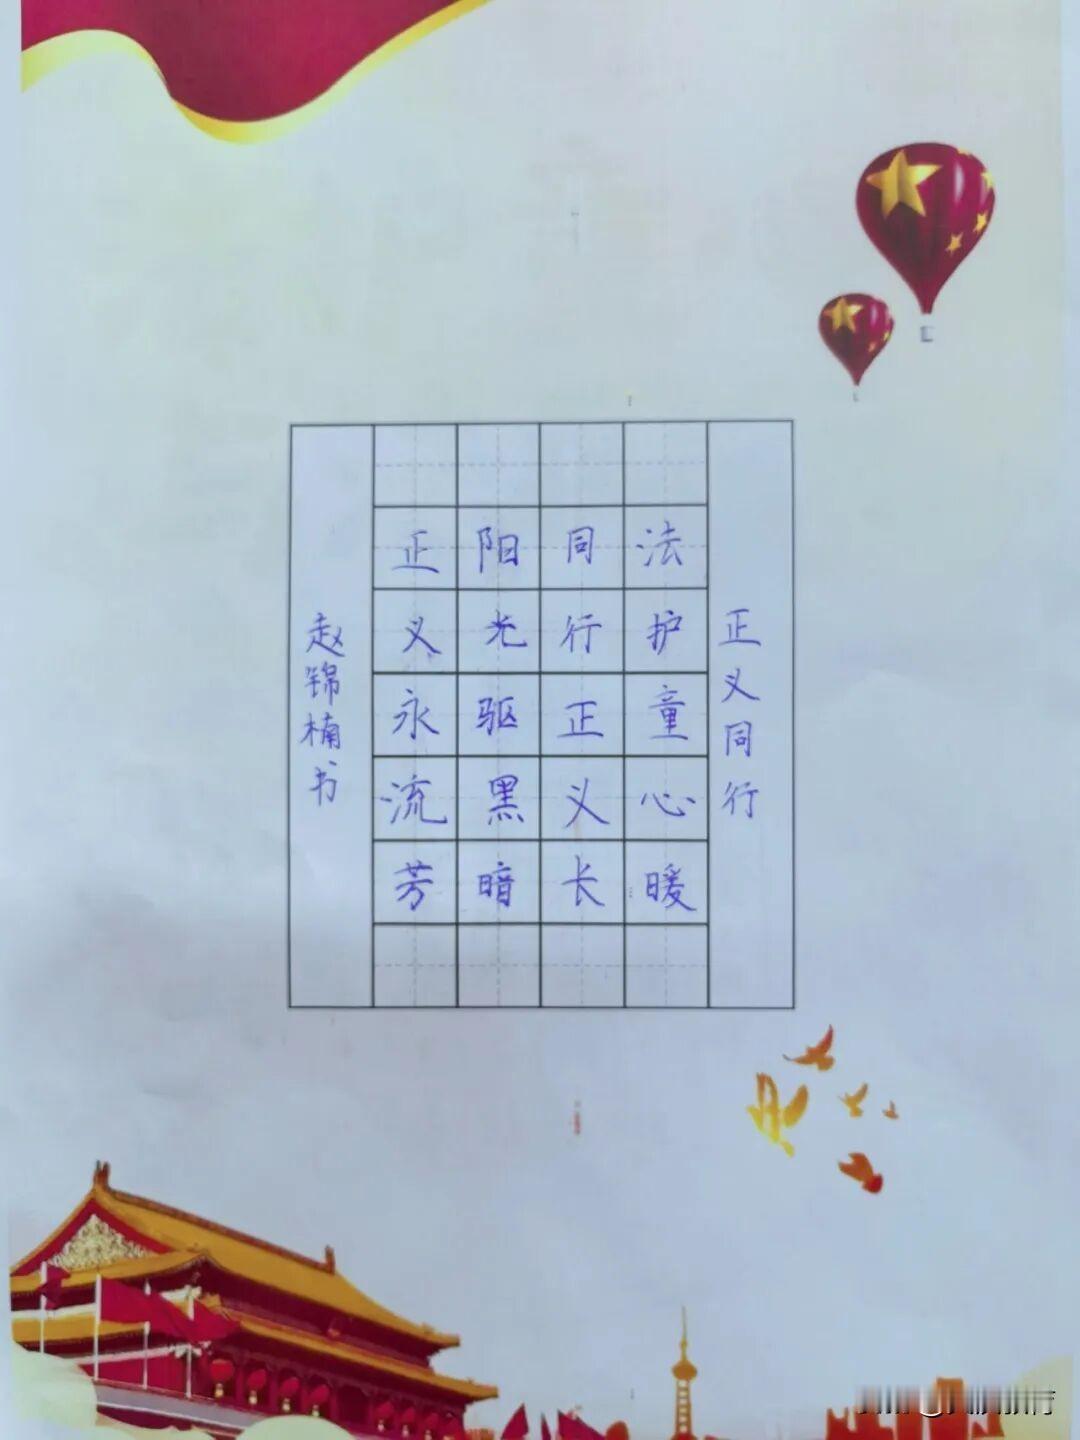 正义同行
法护童心暖
同行正义长
阳光驱黑暗
正义永流芳
赵锦楠书